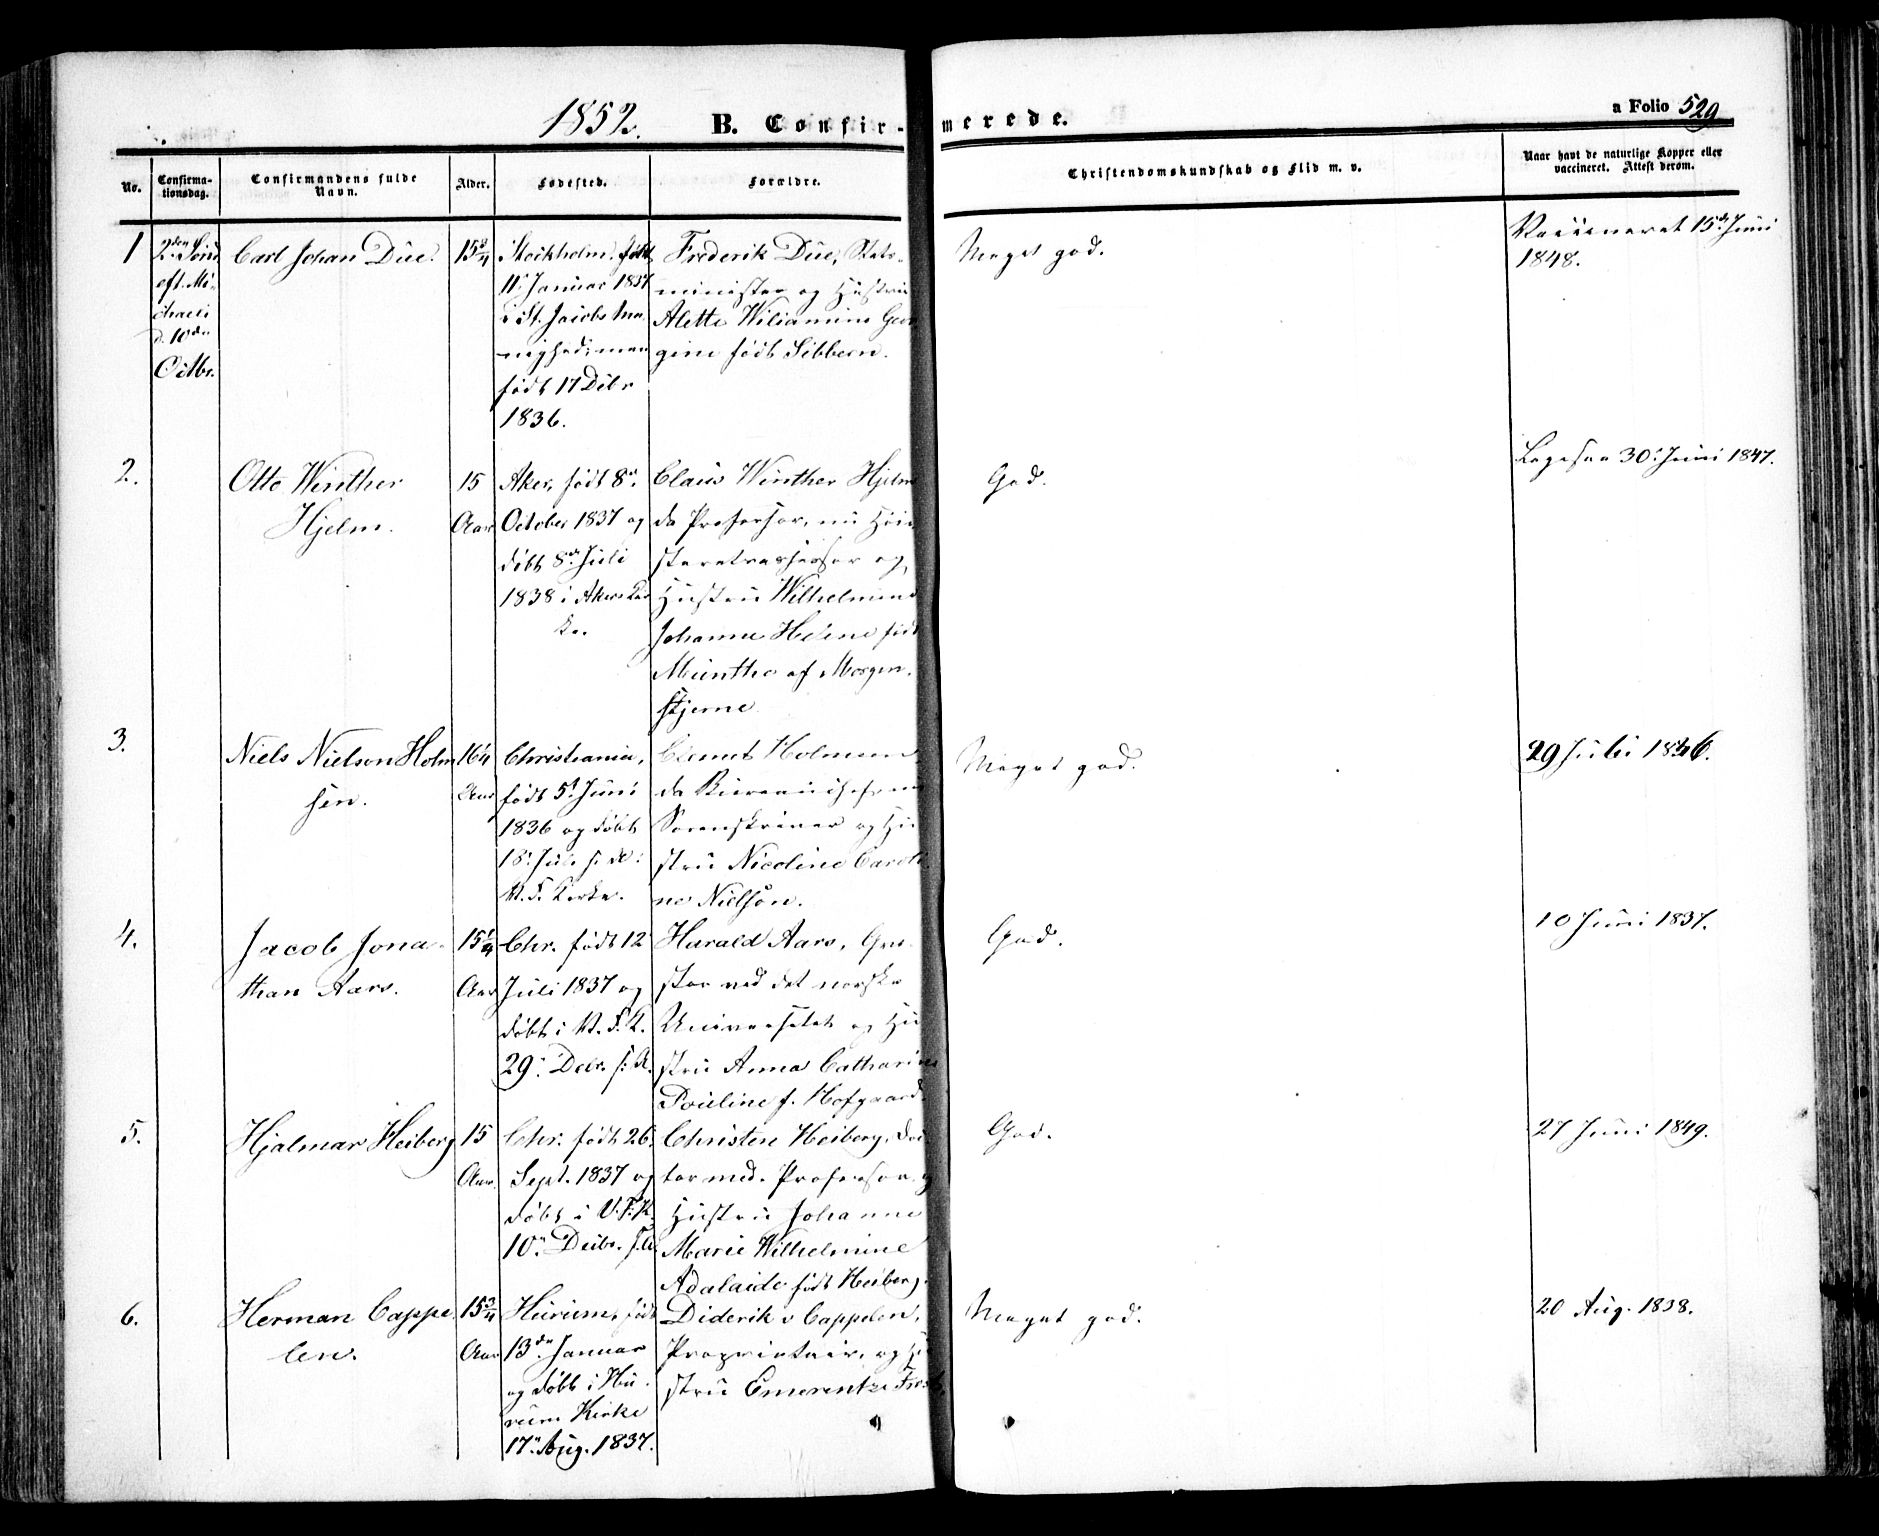 1852. B. Confir- merede. a Folio 529
No. Confirma-tionsdag. Confirmandens fulde Navn. Alder. Fødested. Forældre. Christendomskundskab og Flid m. v. Naar havt de naturlige Kopper eller vaccineret. Attest derom.
1 2den Sønd
eft. Mi-
chaeli
d. 10de
Octbr.
Carl Johan Due.
15 3/4
Stockholm, født
11 Januar 1837
i St. Jacobs
født 17 Decbr
1836.
Frederik Due, Stats-
minister og Hustru
Alette Wiliamine Geor-
gine født Sibbern.
Meget god.
Vaccineret 15de Juni
1848.
2.
Otto Winther
Hjelm.
15
Aar
Aker, født 8de
October 1837 og
døbt 8de Juli
1838 i Akers Kir
ke.
Claus Winther Hjelm
da Professor, nu Høie-
steretsassessor og
Hustru Wilhelmine
Johanne Helene født
Munthe af Morgen-
stjerne
God.
30. Juni 1847.
3.
Niels Nielsen Holm
sen.
16 1/4
Aar
Christiania,
født 5t Juni
1836 og døbt
18. Juli s. A.
V. F. Kirke.
Clemet Holmsen
da Bureauchef, nu
Sorenskriver og Hu
stru Nicoline Caroli
ne Nielsen.
Meget god.
29 Juli 1846.
4.
Jacob Jona-
than Aars.
15 1/4
Aar
Chr. født 12
Juli 1837 og
døbt i V. F. K.
29. Debr. s. A.
Harald Aars, Qvæ-
stor ved det norske
Universitet og Hu
stru Anna Catharine
Pouline f. Hofgaard.
God.
10 Juni 1837.
5.
Hjalmar Heiberg
15
Aar.
Chr. født 26.
Sept. 1837 og
døbt i V. F. K.
10. Decbr. s. A.
Christen Heiberg, Doc
tor med. Professor og
Hustru Johanne
Marie Wilhelmine
Adalaide født Heiberg.
God.
27 Juni 1849.
6.
Herman Cappe
len.
15 3/4
Aar
Hurum, født
13de Januar
og døbt i Hu-
rum Kirke
17. Aug. 1837.
Diderik v Cappelen,
Proprietair, og Hu
stru Emerentze
Meget god.
20 Aug. 1838.